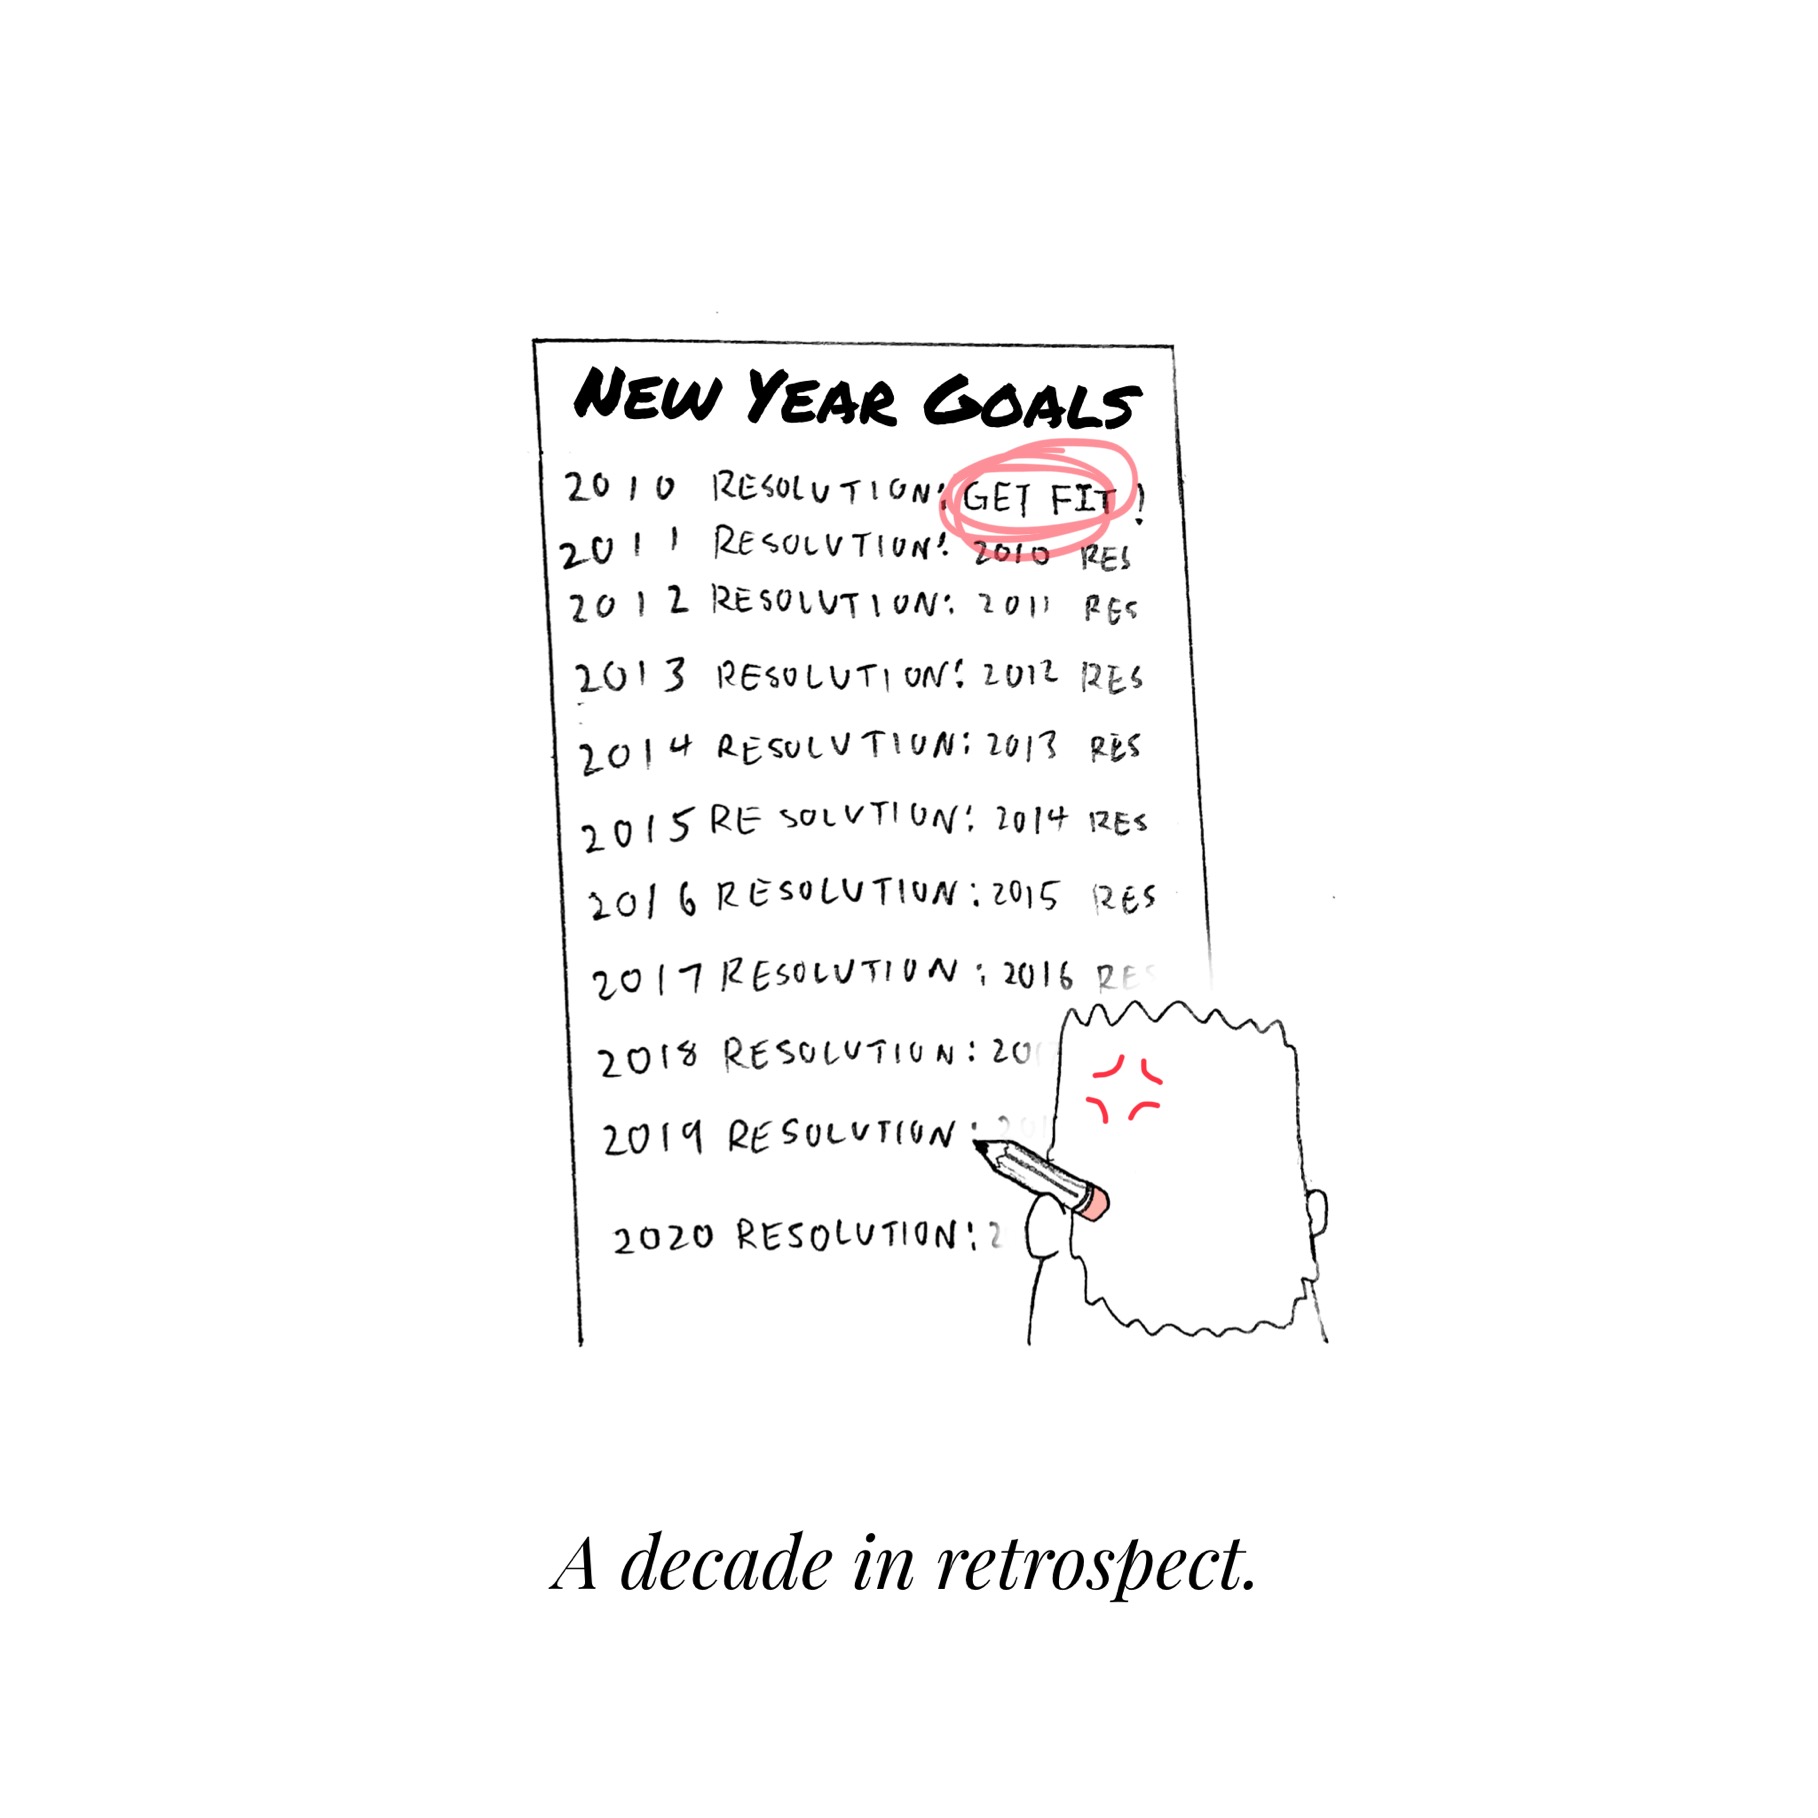 NEW YEAR GOALS
2010 RESOLUTION: GET FIT!
2011 RESOLUTION: 2010 RES
2012 RESOLUTION: 2011 RES
2013 RESOLUTION: 2012 RES
2014 RESOLUTION: 2013 RES
2015 RESOLUTION: 2014 RES
2016 RESOLUTION: 2015 RES
2017 RESOLUTION: 2016 RES
2018 RESOLUTION: 20
2019 RESOLUTION: 201
2020 RESOLUTION: 2
A decade in retrospect.